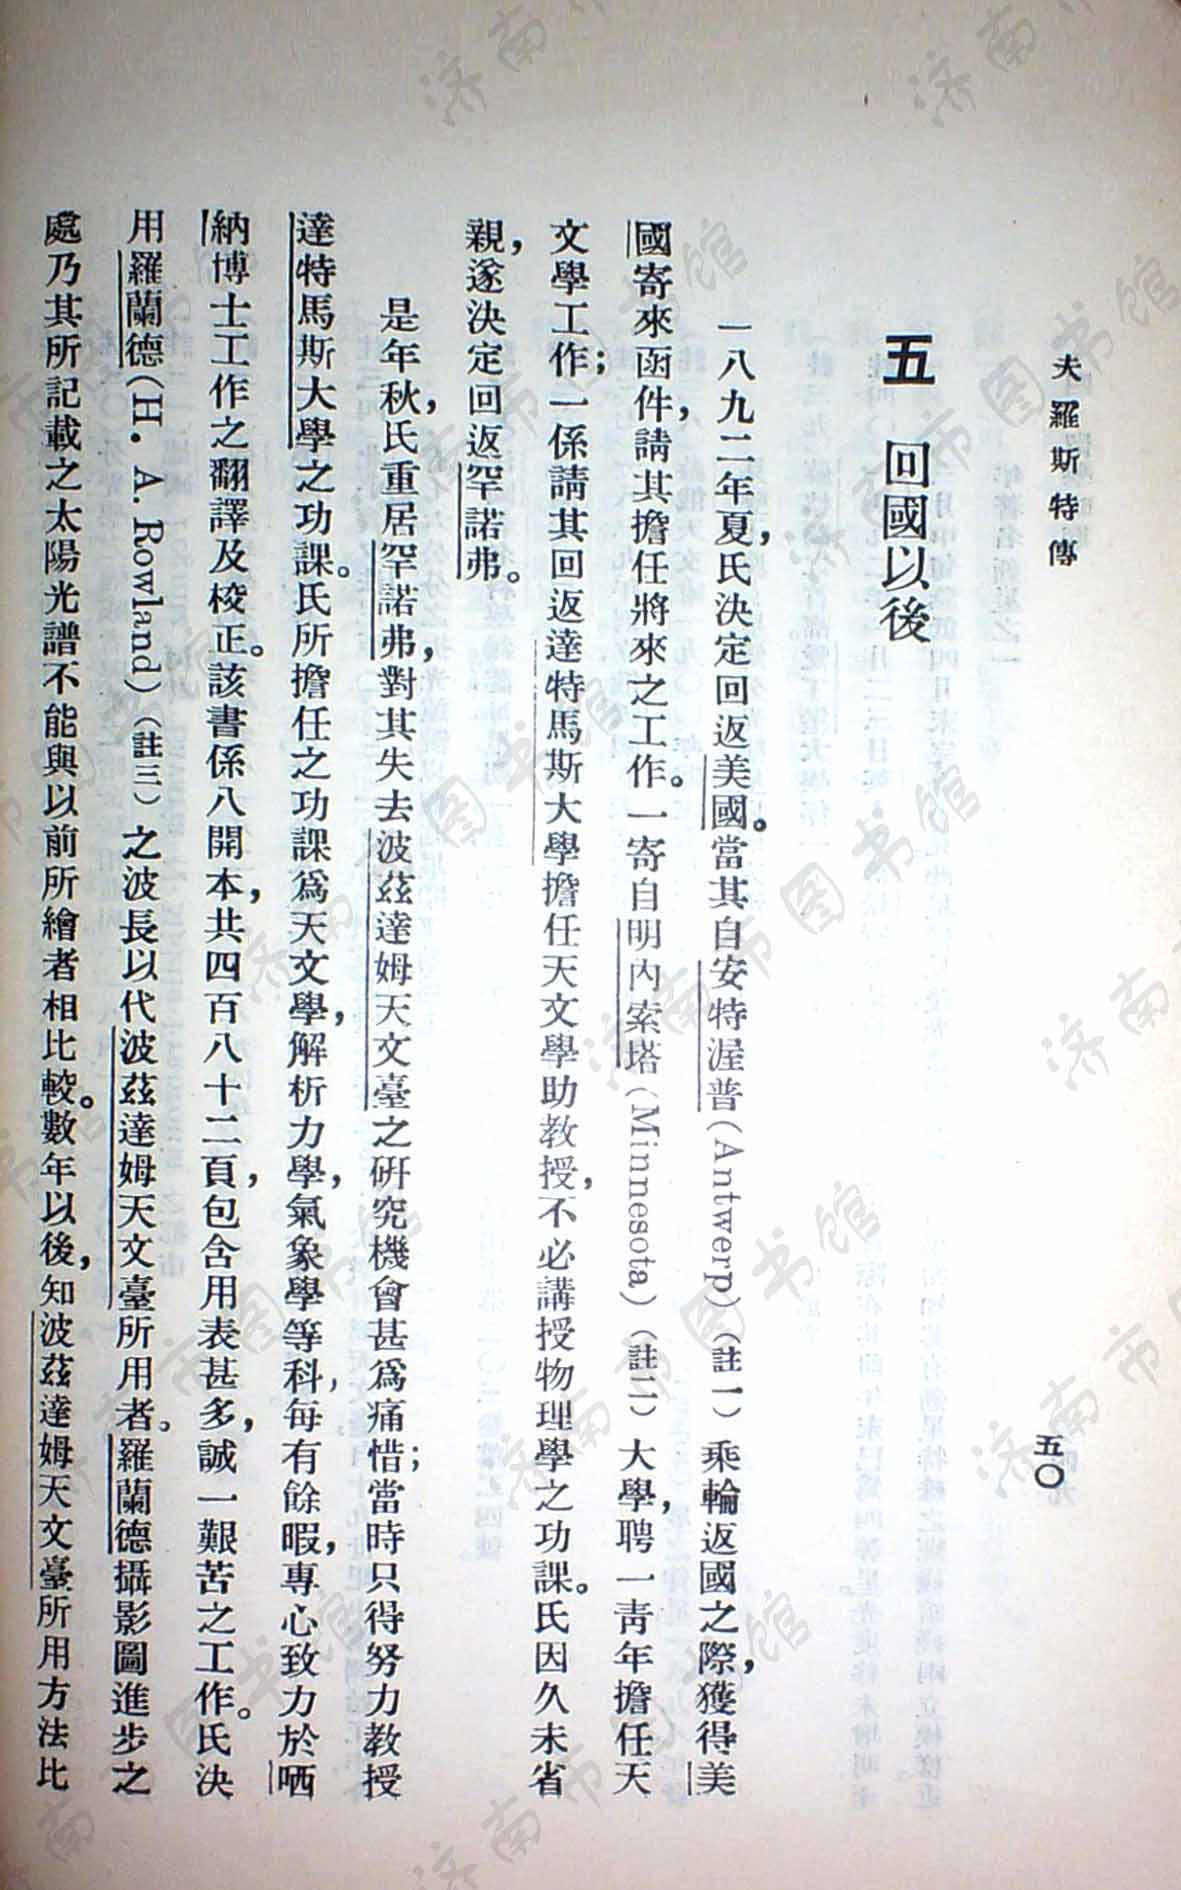 夫羅斯特傳
五〇
五 回國以後
一八九二年夏，氏決定回返美國。當其自安特渥普(Antwerp)(註一)乘輪返國之際，獲得美
國寄來函件，請其擔任將來之工作。一寄自明內索塔(Minnesota)(註二)大學，聘一靑年擔任天
文學工作；一係請其回返達特馬斯大學擔任天文學助教授，不必講授物理學之功課。氏因久未省
親，遂決定回返罕諾弗。
是年秋，氏重居罕諾弗，對其失去波茲達姆天文臺之硏究機會甚爲痛惜；當時只得努力教授
達特馬斯大學之功課。氏所擔任之功課爲天文學，解析力學，氣象學等科，每有餘暇，專心致力於哂
納博士工作之翻譯及校正。該書係八開本，共四百八十二頁，包含用表甚多，誠一艱苦之工作。氏決
用羅蘭德(H. A. Rowland)(註三)之波長以代波茲達姆天文臺所用者。羅蘭德攝影圖進步之
處乃其所記載之太陽光譜不能與以前所繪者相比較。數年以後，知波茲達姆天文臺所用方法比
济南市图书馆